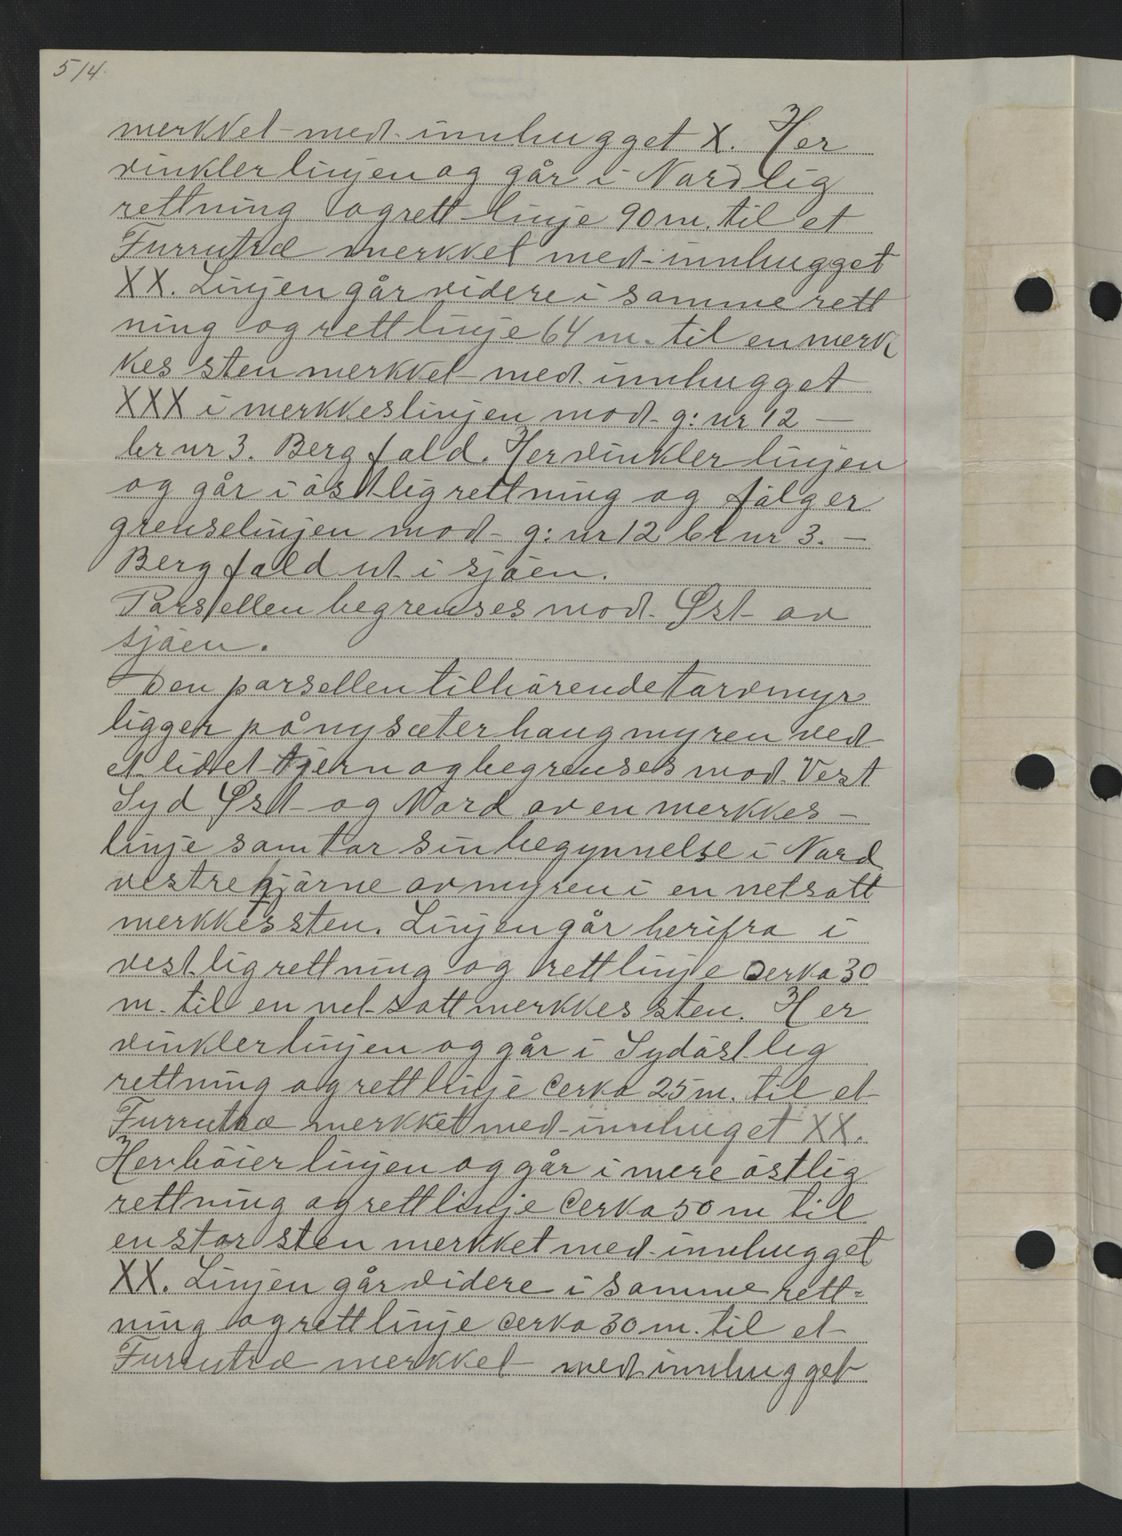 514.
merkket med innhugget X. Her
vinkler linjen og går i Nordlig
rettning og rett linje 90 m. til et
Furrutræ merkket med innhugget
XX. Linjen går videre i samme rett
ning og rett linje 64 m. til en merk
kes sten merkket med innhugget
XXX i merkkeslinjen mod g: nr 12 —
br nr 3. Bergfald. Her vinkler linjen
og går i östlig rettning og fölger
grenselinjen mod g: nr 12 br nr 3. —
Bergfald ut i sjöen.
Parsellen begrenses mod Øst av
sjöen.
Den parsellen tilhörende torvmyr
ligger på nysæterhaugmyren ved
et lidet tjern og begrenses mod Vest
Syd Øst og Nord av en merkkes –
linje som tar sin begynnelse i Nord
vestre hjörne av myren i en netsatt
merkkessten. Linjen går herifra i
vestlig rettning og rett linje cerka 30
m. til en netsatt merkkes sten. Her
vinkler linjen og går i Sydöstlig
rettning og rett linje cerka 25 m. til et
Furrutræ merkket med innhuget XX.
Her böier linjen og går i mere östlig
rettning og rett linje cerka 50 m til
en stor sten merkket med innhugget
XX. Linjen går videre i samme rett=
ning og rett linje cerka 30 m. til et
Furrutræ merkket med innhugget